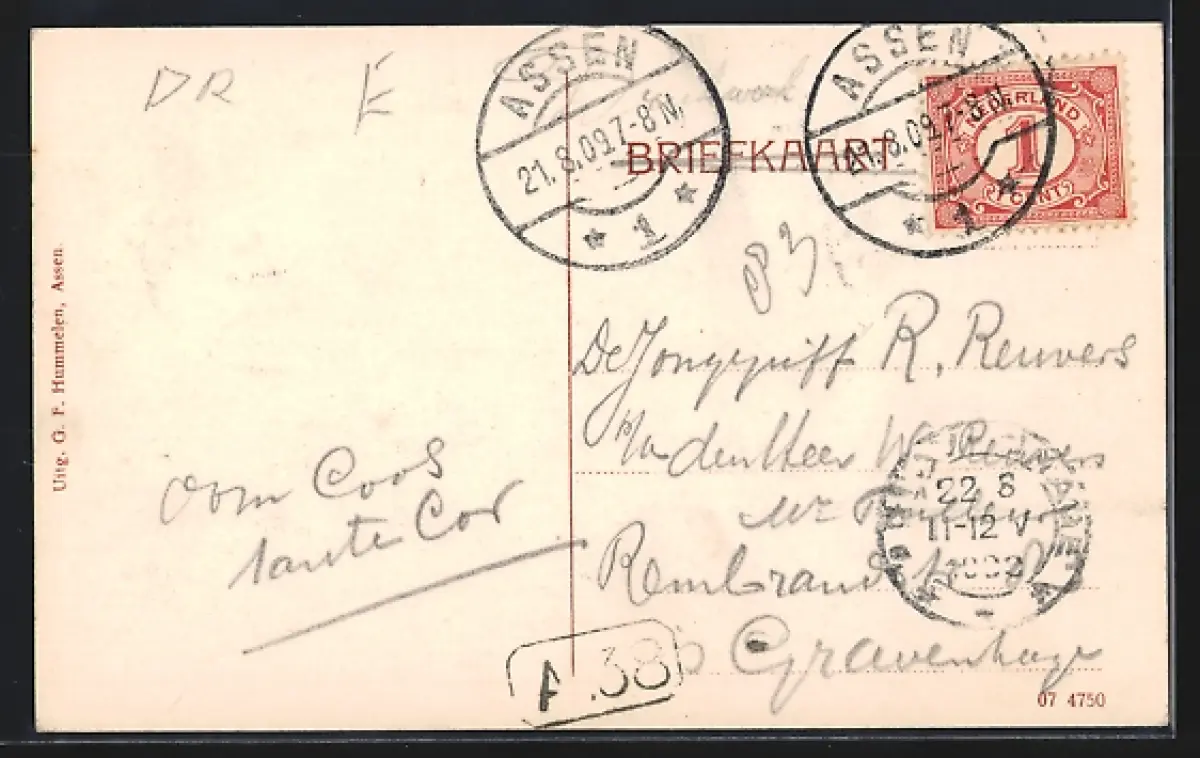 DR E
ASSEN
21.8.09.7-8N.
1
ASSEN
21.8.09.7-8N.
1
BRIEFKAART
NEDERLAND
1
CENT
Uitg. G. F. Hummelen, Assen.
De Jongejuff R. Reuvers
den Heer W. Reuvers
Rembrandt
's Gravenhage
22 8
11-12 V
oom Coos
tante Cor
A .38
07 4750